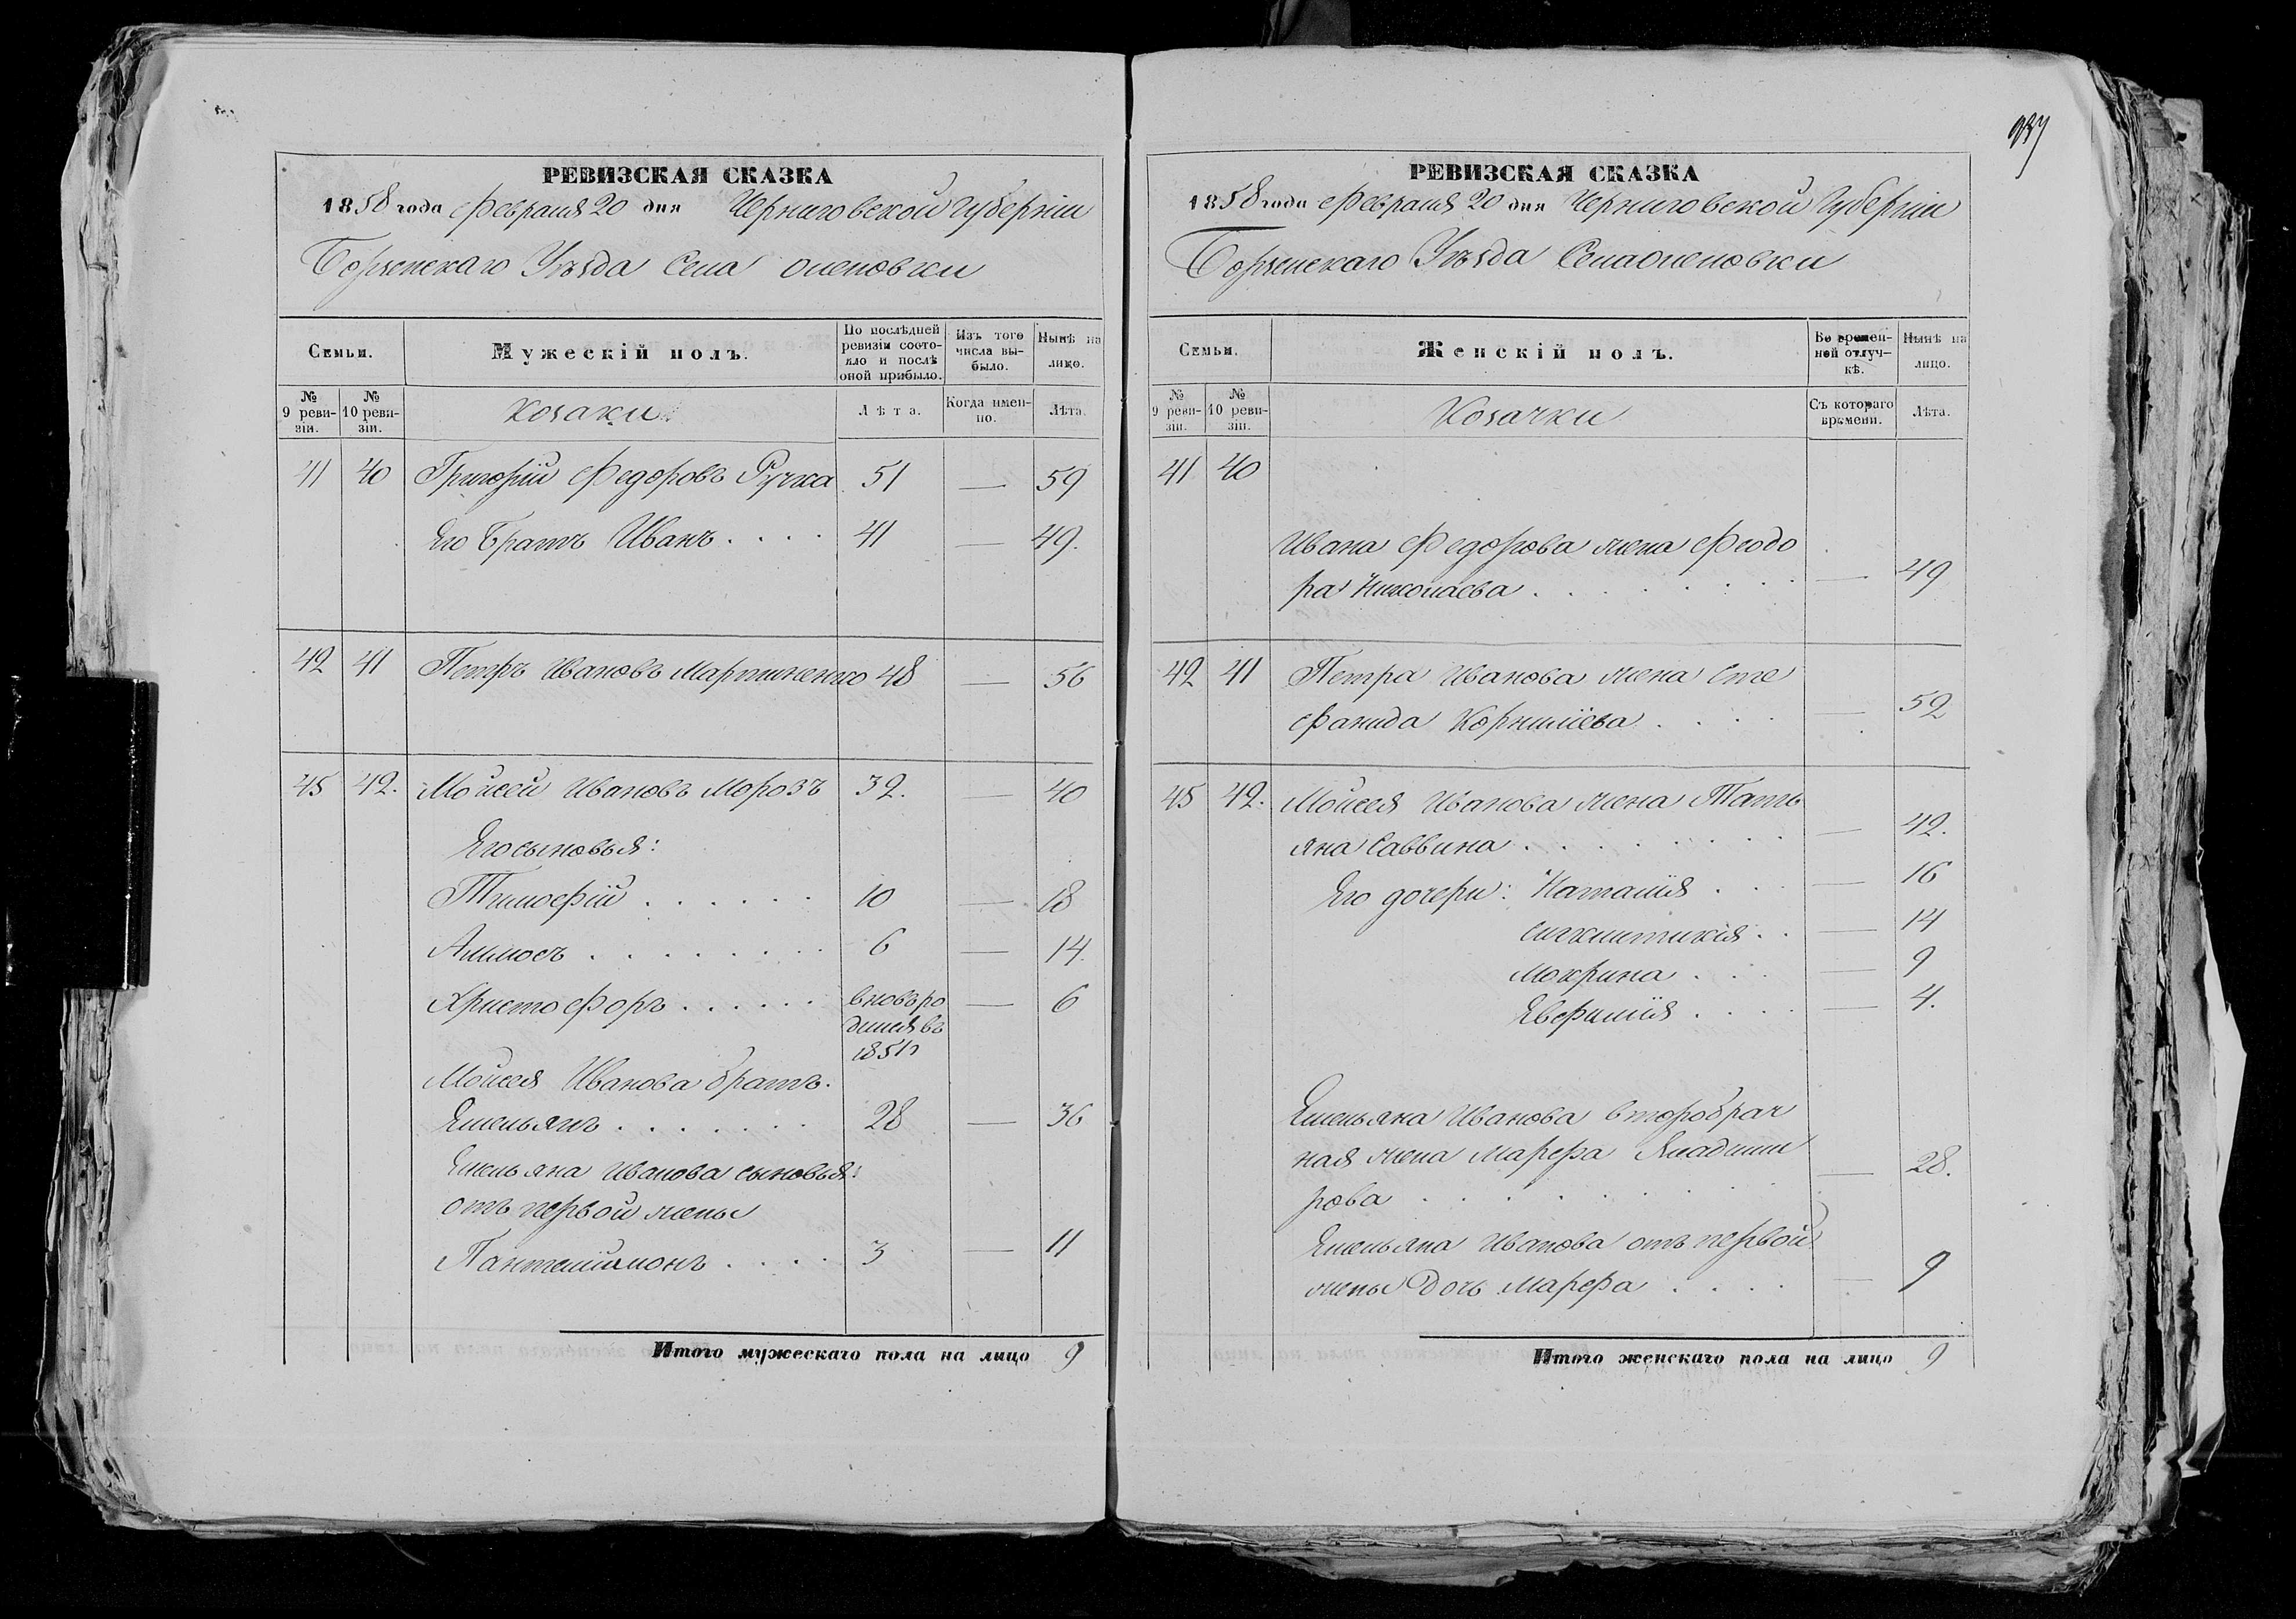 РЕВИЗСКАЯ СКАЗКА
1858 года Февраля 20 дня Черниговской Губернiи
Борзенскаго Уѣзда Села Оленовки
Семьи.
Мужескiй полъ.
По послѣдней ревизiи состояло и послѣ оной прибыло.
Изъ того числа выбыло.
Нынѣ на лицо.
№ 9 ревизiи.
№ 10 ревизiи.
Козаки
Лѣта.
Когда именно.
Лѣта.
41 40 Григорiй Федоровъ Ручка 51 — 59
Его Братъ Иванъ . . . . 41 — 49.
42 41 Петръ Ивановъ Мартиненко 48 — 56
45 42. Мойсей Ивановъ Морозъ 32. — 40
Его сыновья:
Тимофiй . . . . . . 10 — 18
Амносъ . . . . . . . . 6 — 14.
Христофоръ . . . . . . вновь ро — 6
дился въ
1851
Мойсея Иванова братъ.
Емельянъ . . . . . . . 28 — 36
Емельяна Иванова сыновья:
отъ первой жены
Пантелiимонъ . . . . 3 — 11
Итого мужескаго пола на лицо 9
РЕВИЗСКАЯ СКАЗКА
1858 года Февраля 20 дня Черниговской Губернiи
Борзенскаго Уѣзда Села Оленовки
Семьи.
Женскiй полъ.
Во временной отлучкѣ.
Нынѣ на лицо.
№ 9 ревизiи.
№ 10 ревизiи.
Козачки
Съ котораго времени.
Лѣта.
41 40
Ивана Федорова жена Феодо
ра Николаева . . . . . . . — 49
42 41 Петра Иванова жена Сте
фанида Корнилiева . . . . — 52
45 42. Мойсея Иванова жена Тать
яна Саввина . . . . . . . . — 42.
Его дочери: Наталiя . . . — 16
Сигклитикiя . . — 14
Мокрина . . . — 9
Евфимiя . . . . — 4.
Емельяна Иванова второбрач
ная жена Марфа Владими
рова . . . . . . . . — 28.
Емельяна Иванова отъ первой
жены дочь Марфа . . . . — 9
Итого женскаго пола на лицо 9